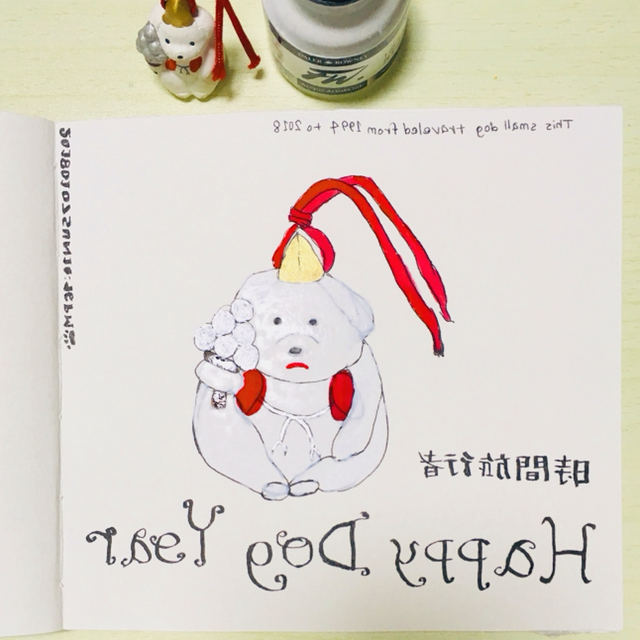 This small dog traveled from 1994 to 2018
20180107SUN
時間旅行者
Happy Dog Year